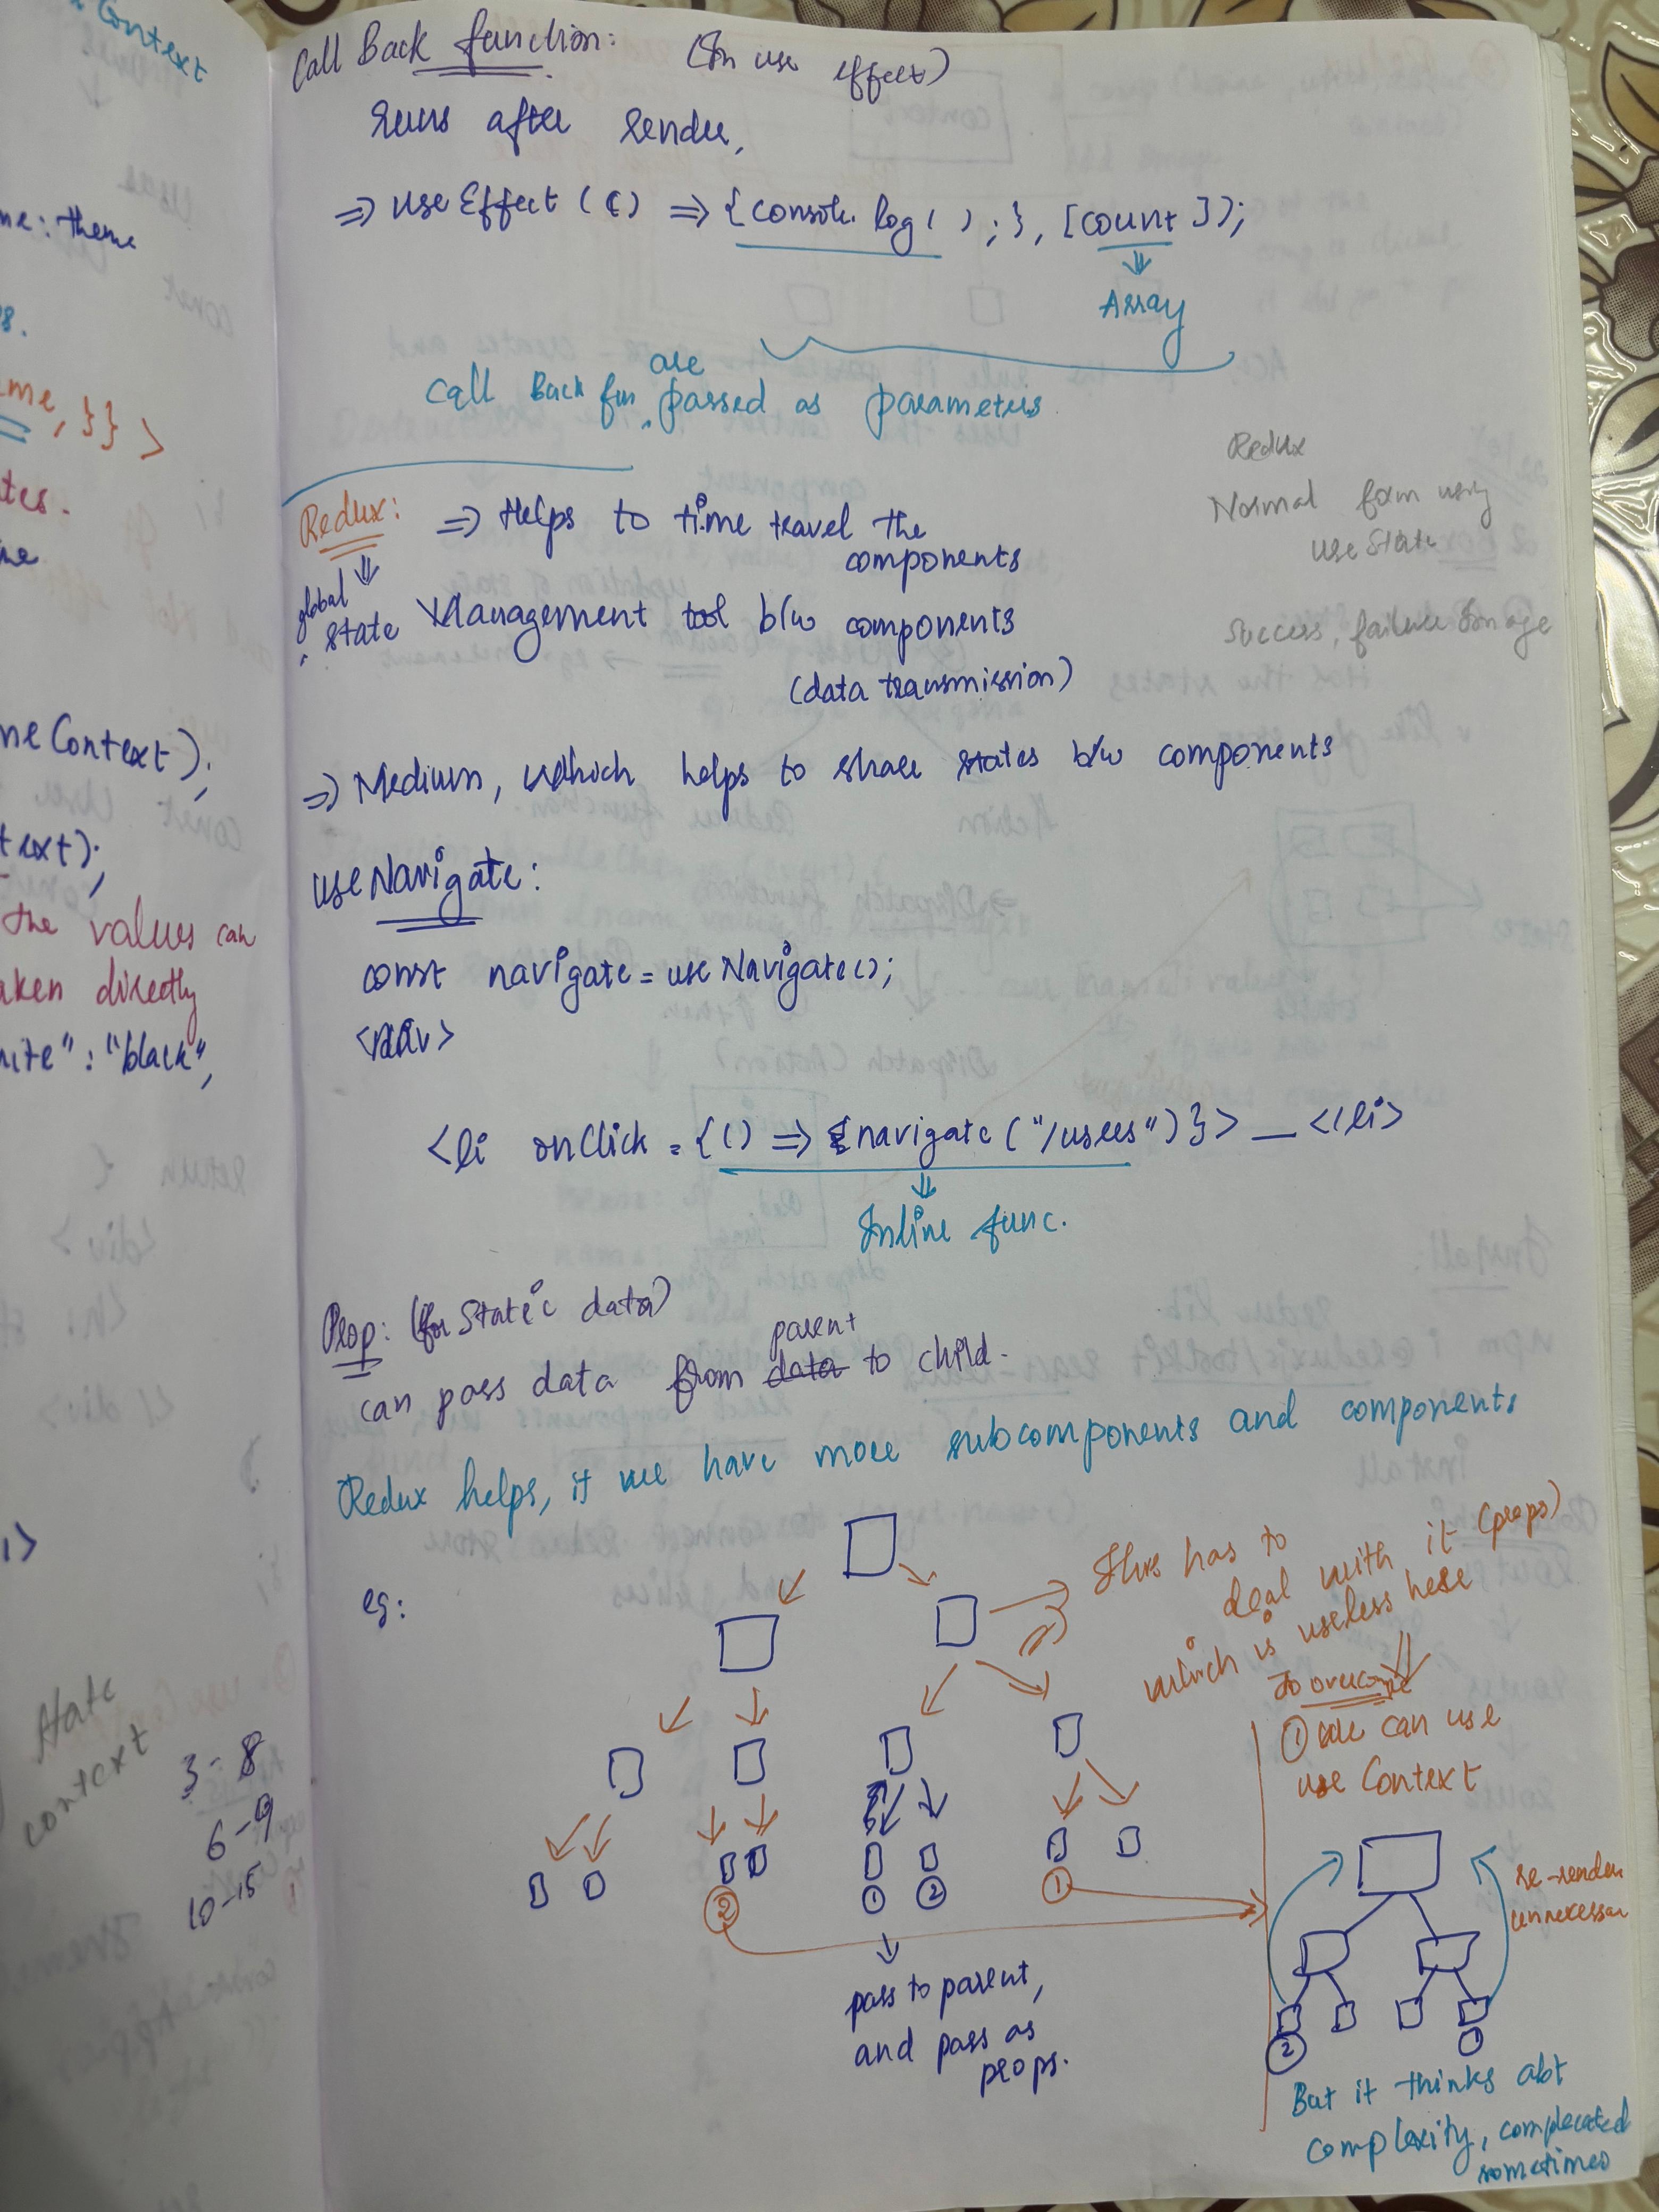 Context
me: theme
8.
me, }} >
tes.
me
meContext);
text);
the values can
aken directly
hite" : "black",
State
context
3 - 8
6 - 9
10 - 15
Call Back function: (In use effect)
Runs after render,
=> useEffect (() => {console.log( ) ; }, [count ]);
Array
call Back fun are passed as parameters
Redux: => Helps to time travel the
components
global
state Management tool b/w components
(data transmission)
Redux
Normal form using
useState
Success, failure
=> Medium, which helps to share states b/w components
useNavigate:
const navigate = useNavigate();
<div>
<li onClick = {() => {navigate ("/users")}> _ </li>
Inline func.
Prop: (for Static data)
can pass data from data parent to child.
Redux helps, if we have more subcomponents and components
eg:
This has to
deal with it (props)
which is useless here
To overcome
① we can use
use Context
② ① ② ①
pass to parent,
and pass as
props.
re-render
unnecessar
② ①
But it thinks abt
complexity, complecated
sometimes